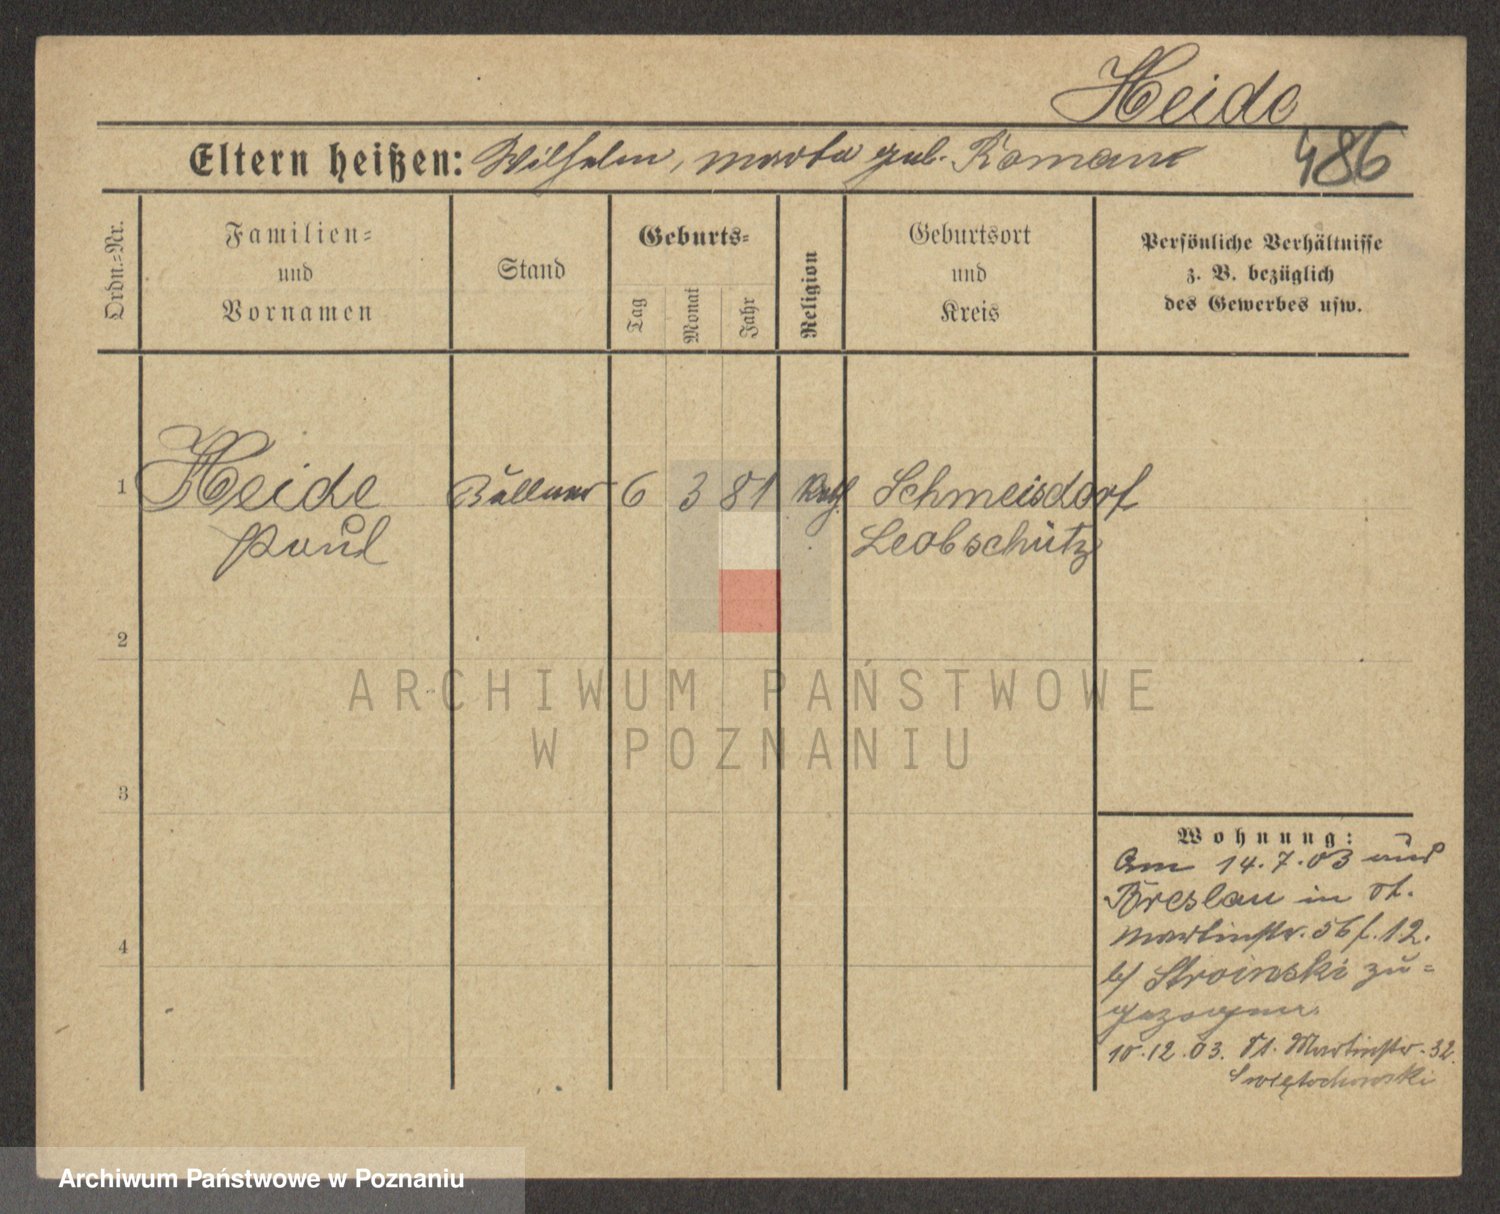 Heide
Eltern heißen: Wilhelm, Marta geb. Romann
486
Ordn.=Nr.
Familien=
und
Vornamen
Stand
Geburts=
Tag
Monat
Jahr
Religion
Geburtsort
und
Kreis
Persönliche Verhältnisse
z. B. bezüglich
des Gewerbes usw.
1
Heide
Paul
Kellner
6
3
81
Kath
Schmeisdorf
Leobschütz
2
3
4
Wohnung:
Am 14.7.03 aus
Breslau in St.
Martinstr. 56 f. 12.
b/ Stroinski zu=
gezogen.
10.12.03. St. Martinstr. 32.
Swiętochowski
ARCHIWUM PAŃSTWOWE
W POZNANIU
Archiwum Państwowe w Poznaniu